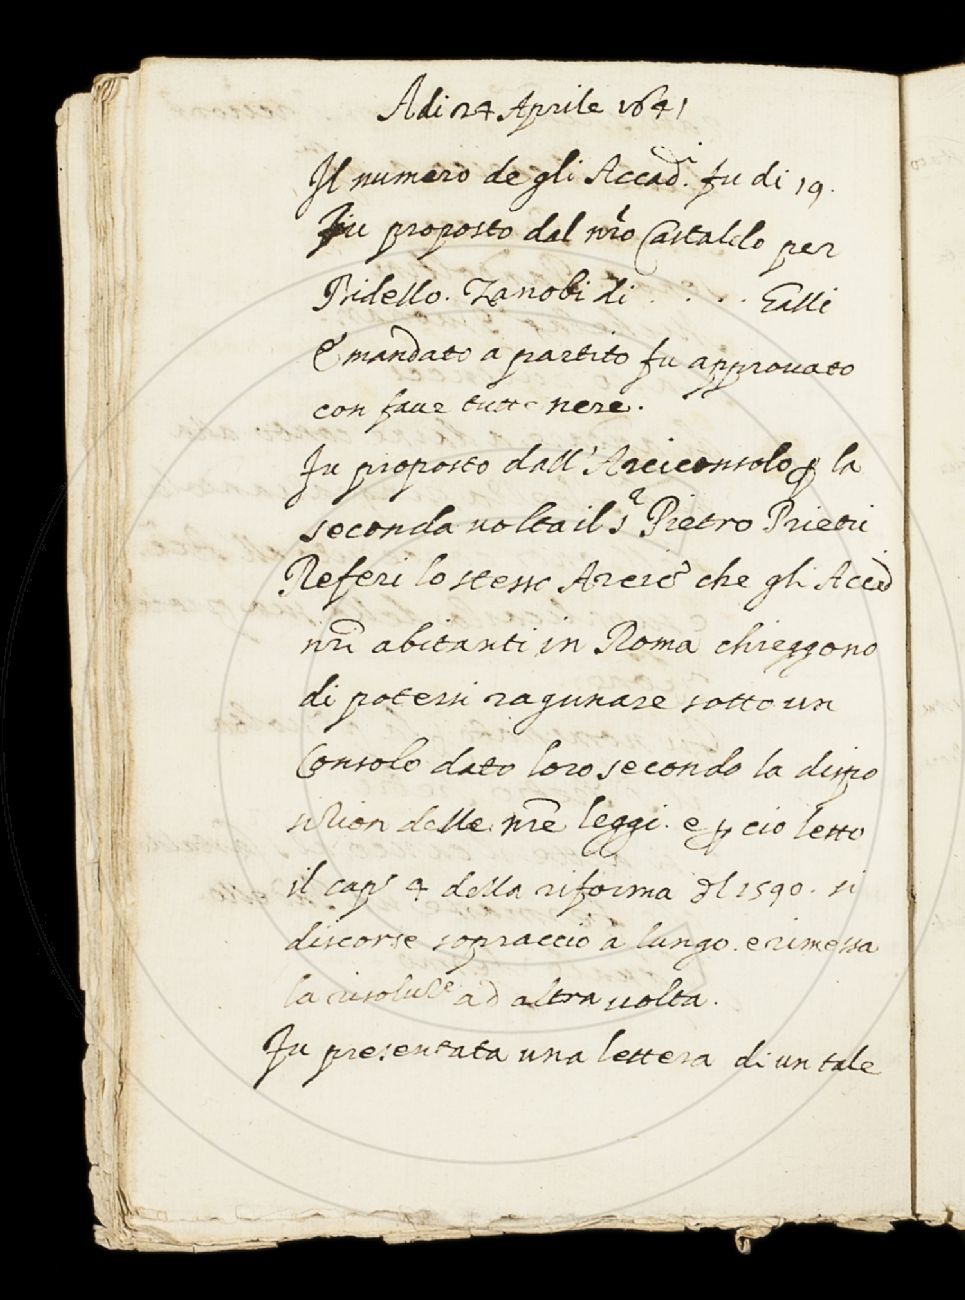 Adi 24 Aprile 1641
Il numero de gli Accad.i fu di 19.
Fu proposto dal nro Castaldo per
Bidello. Zanobi di . . . . Galli
E mandato a partito fu approuato
con faue tutte nere.
Fu proposto dall'Arciconsolo p la
seconda uolta il s.r Pietro Prieti
Referi lo stesso Arcico che gli Accad
nri abitanti in Roma chieggono
di potersi ragunare sotto un
Consolo dato loro secondo la dispo
sition delle nre leggi. e p cio letto
il cap.o 4 della riforma dl 1590. si
discorse sopraccio a lungo. e rimessa
la risoluz.e ad altra uolta.
Fu presentata una lettera di un tale